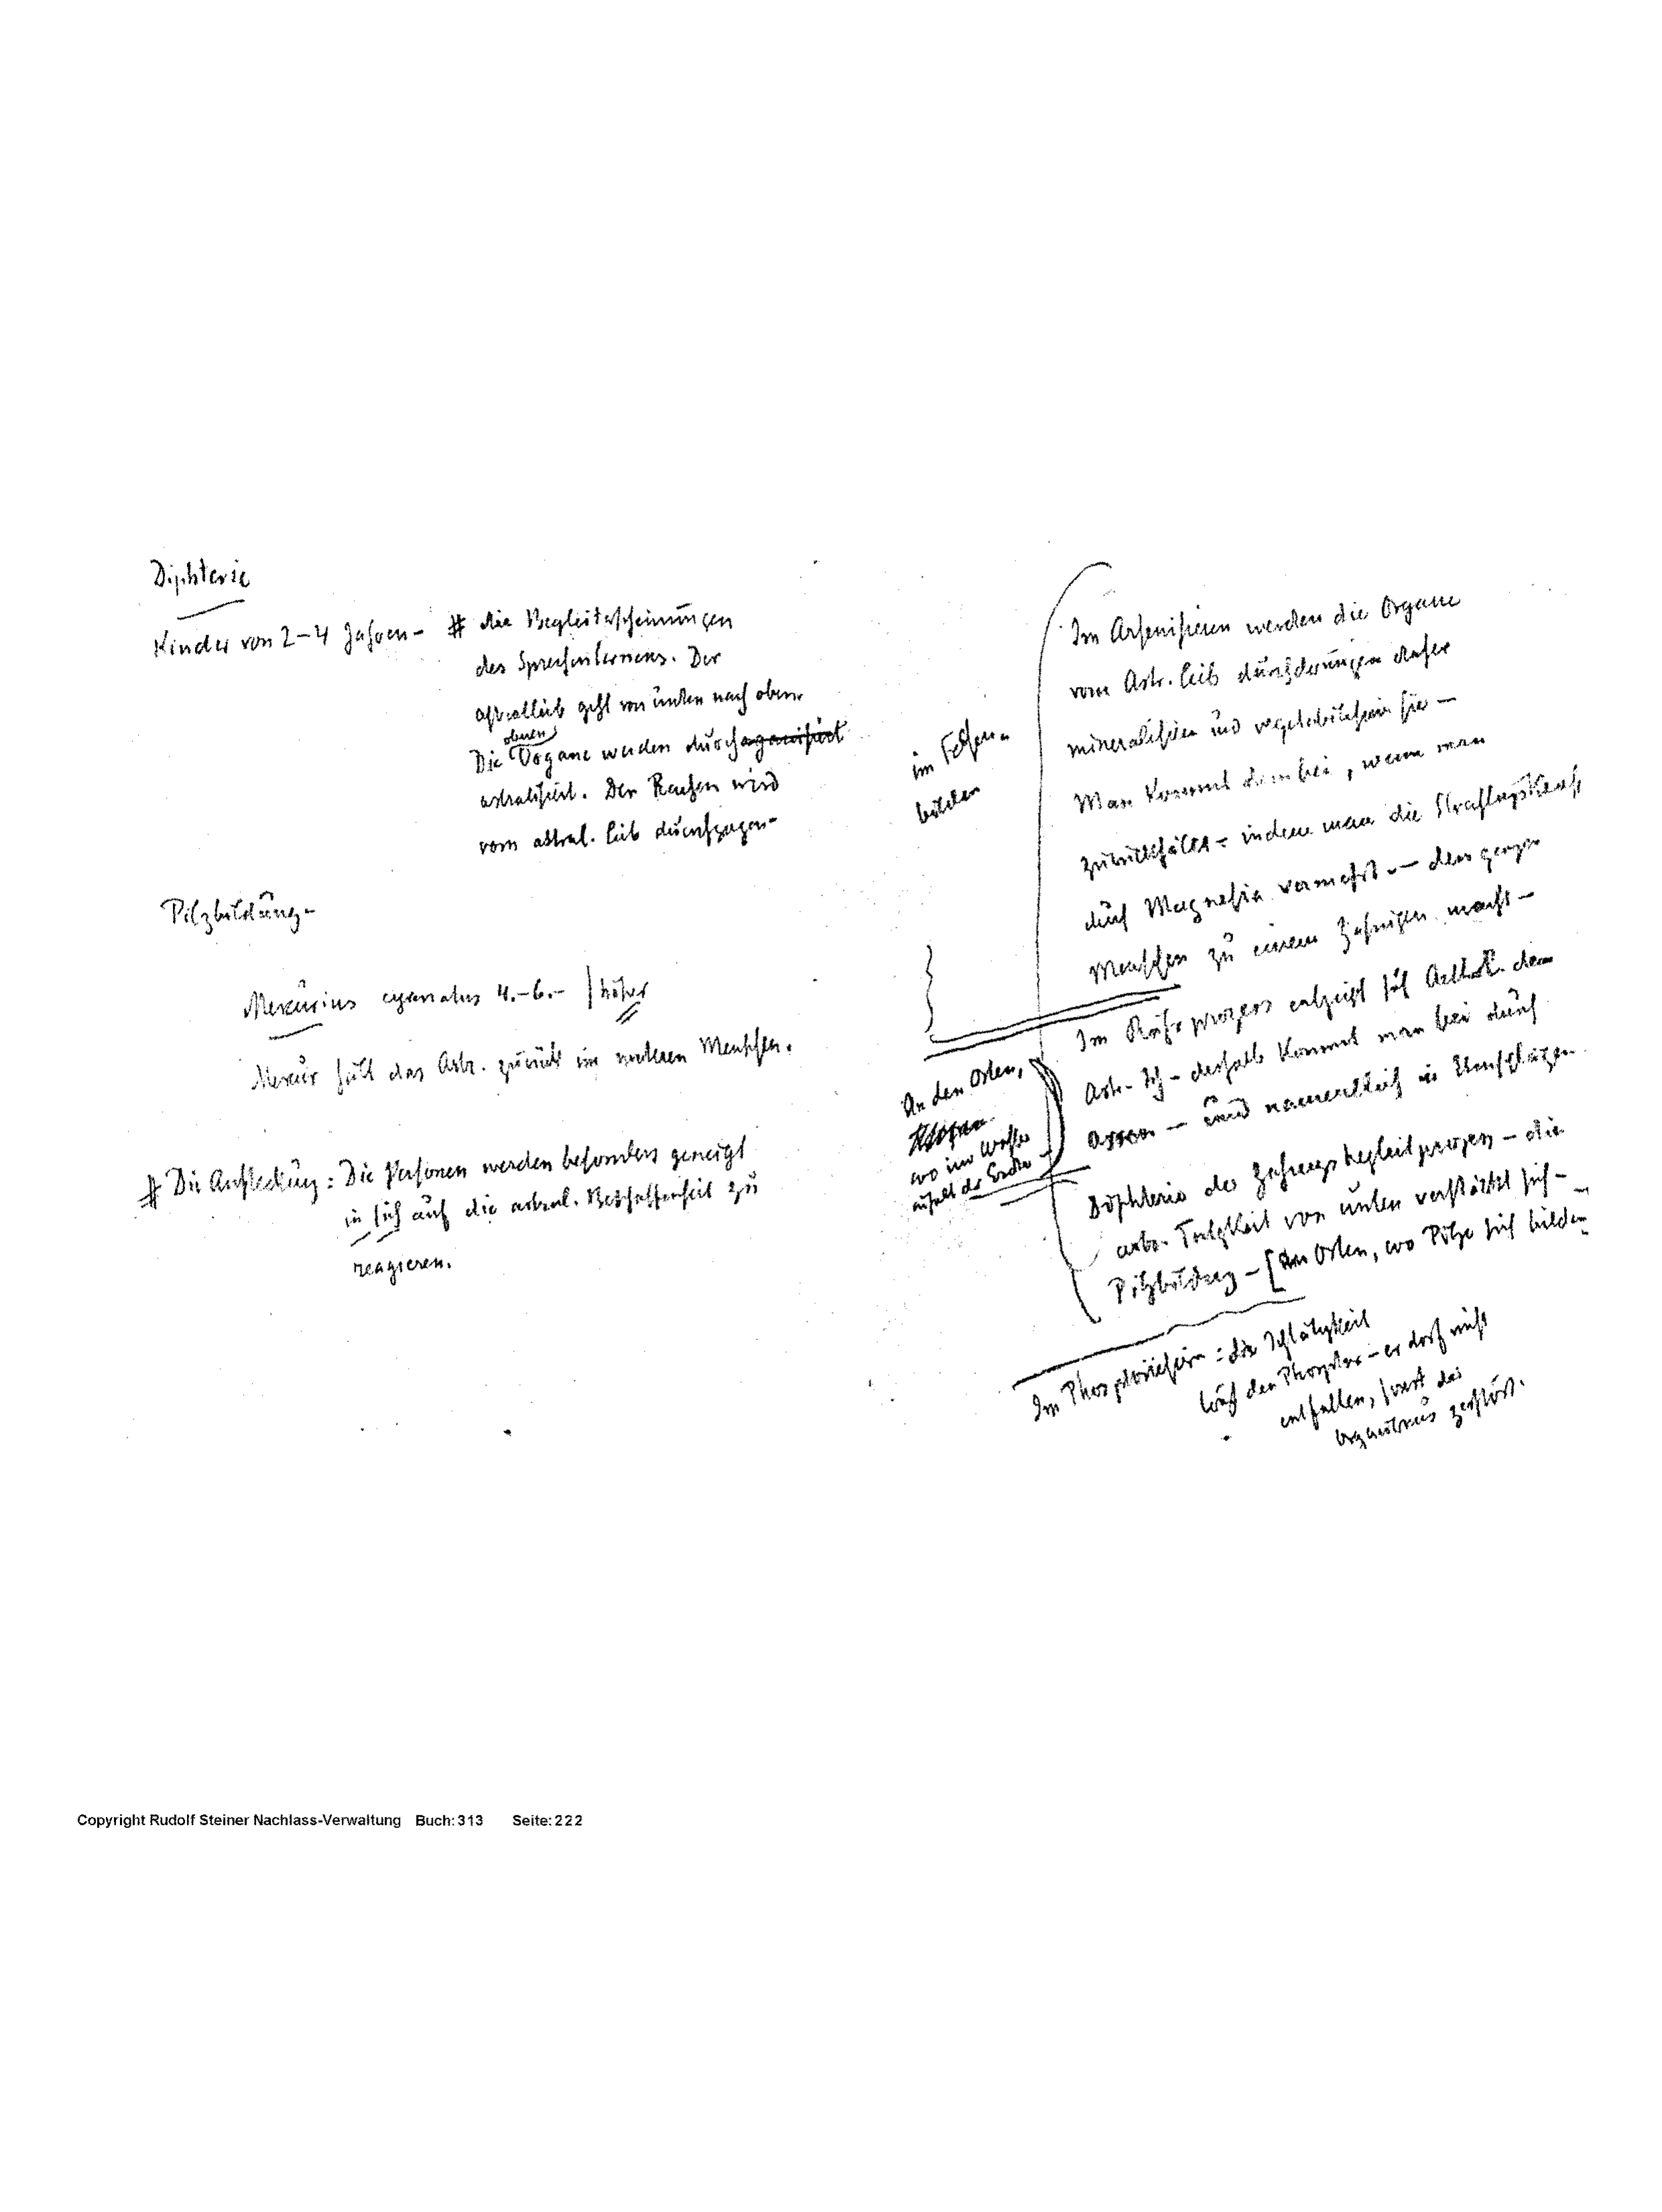 Diphterie
Kinder von 2–4 Jahren – # die Begleiterscheinungen
des Sprechenlernens. Der
Astralleib geht von unten nach oben.
oberen
Die Organe werden durchorganisiert
astralisiert. Der Rachen wird
vom astral. Leib durchzogen –
Pilzbildung –
Mercurius cyanatus 4.–6.– | höher
Mercur hält das Astr. zurück im unteren Menschen.
# Die Ansteckung : Die Personen werden besonders geneigt
in sich auf die astral. Beschaffenheit zu
reagieren.
im Felsen –
bilden
An den Orten,
wo im Wasser
aufhält der Erde –
Im Arsenisieren werden die Organe
vom Astr. Leib durchdrungen daher
mineralisieren und vegetabilisieren sie –
Man kommt dem bei, wenn man
zurückhält = indem man die Strahlungskraft
durch Magnesia vermehrt – den ganzen
Menschen zu einem Zahnigen macht –
Im Ruhrprozess entzieht sich Aetherl. dem
Astr. Ich – deshalb kommt man bei durch
Arsen – und namentlich in Umschlägen
Diphterie der Zahnungsbegleitprozess – die
astr. Tätigkeit von unten verstärkt sich –
Pilzbildung – [An Orten, wo Pilze sich bilden
Im Phosphorisieren : die Ichtätigkeit
den Phosphor – er darf nicht
entfallen, sonst das
zerstört.
Copyright Rudolf Steiner Nachlass-Verwaltung Buch: 313 Seite: 222